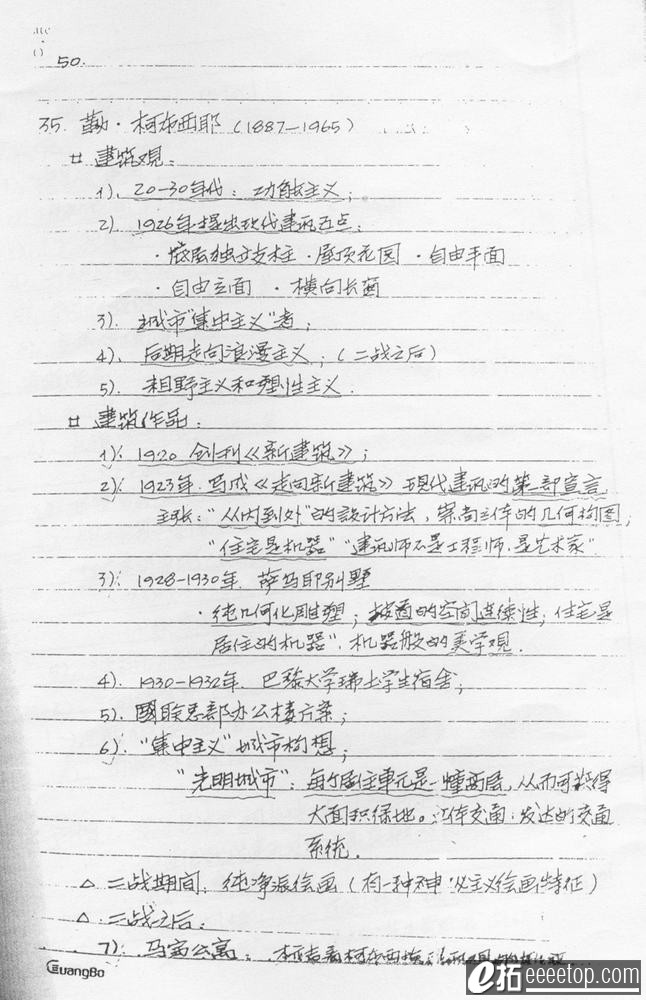 50.
35. 勒·柯布西耶（1887—1965）
建筑观：
1). 20—30年代：功能主义；
2) 1926年提出现代建筑五点：
·底层独立支柱 ·屋顶花园 ·自由平面
·自由立面 ·横向长窗
3). 城市"集中主义"者；
4). 后期走向浪漫主义；（二战之后）
5). 粗野主义和塑性主义.
建筑作品：
1): 1920 创刊《新建筑》；
2): 1923年.写成《走向新建筑》现代建筑的第一部宣言
主张："从内到外"的设计方法，崇尚立体的几何构图,
"住宅是机器" "建筑师不是工程师.是艺术家"
3): 1928-1930年. 萨马耶别墅
·纯几何化雕塑；按置的空间连续性；住宅是
居住的机器". 机器般的美学观.
4). 1930—1932年. 巴黎大学瑞士学生宿舍；
5). 國联总部办公楼方案；
6): "集中主义"城市构想；
"光明城市"：每个居住单元是一幢两层，从而可获得
大面积绿地。立体交通：发达的交通
系统.
△ 二战期间：纯净派绘画（有一种神义主义绘画特征）
△ 二战之后：
7): 马宙公寓：标志着柯布西
GuangBo
e拓 eeeetop.com